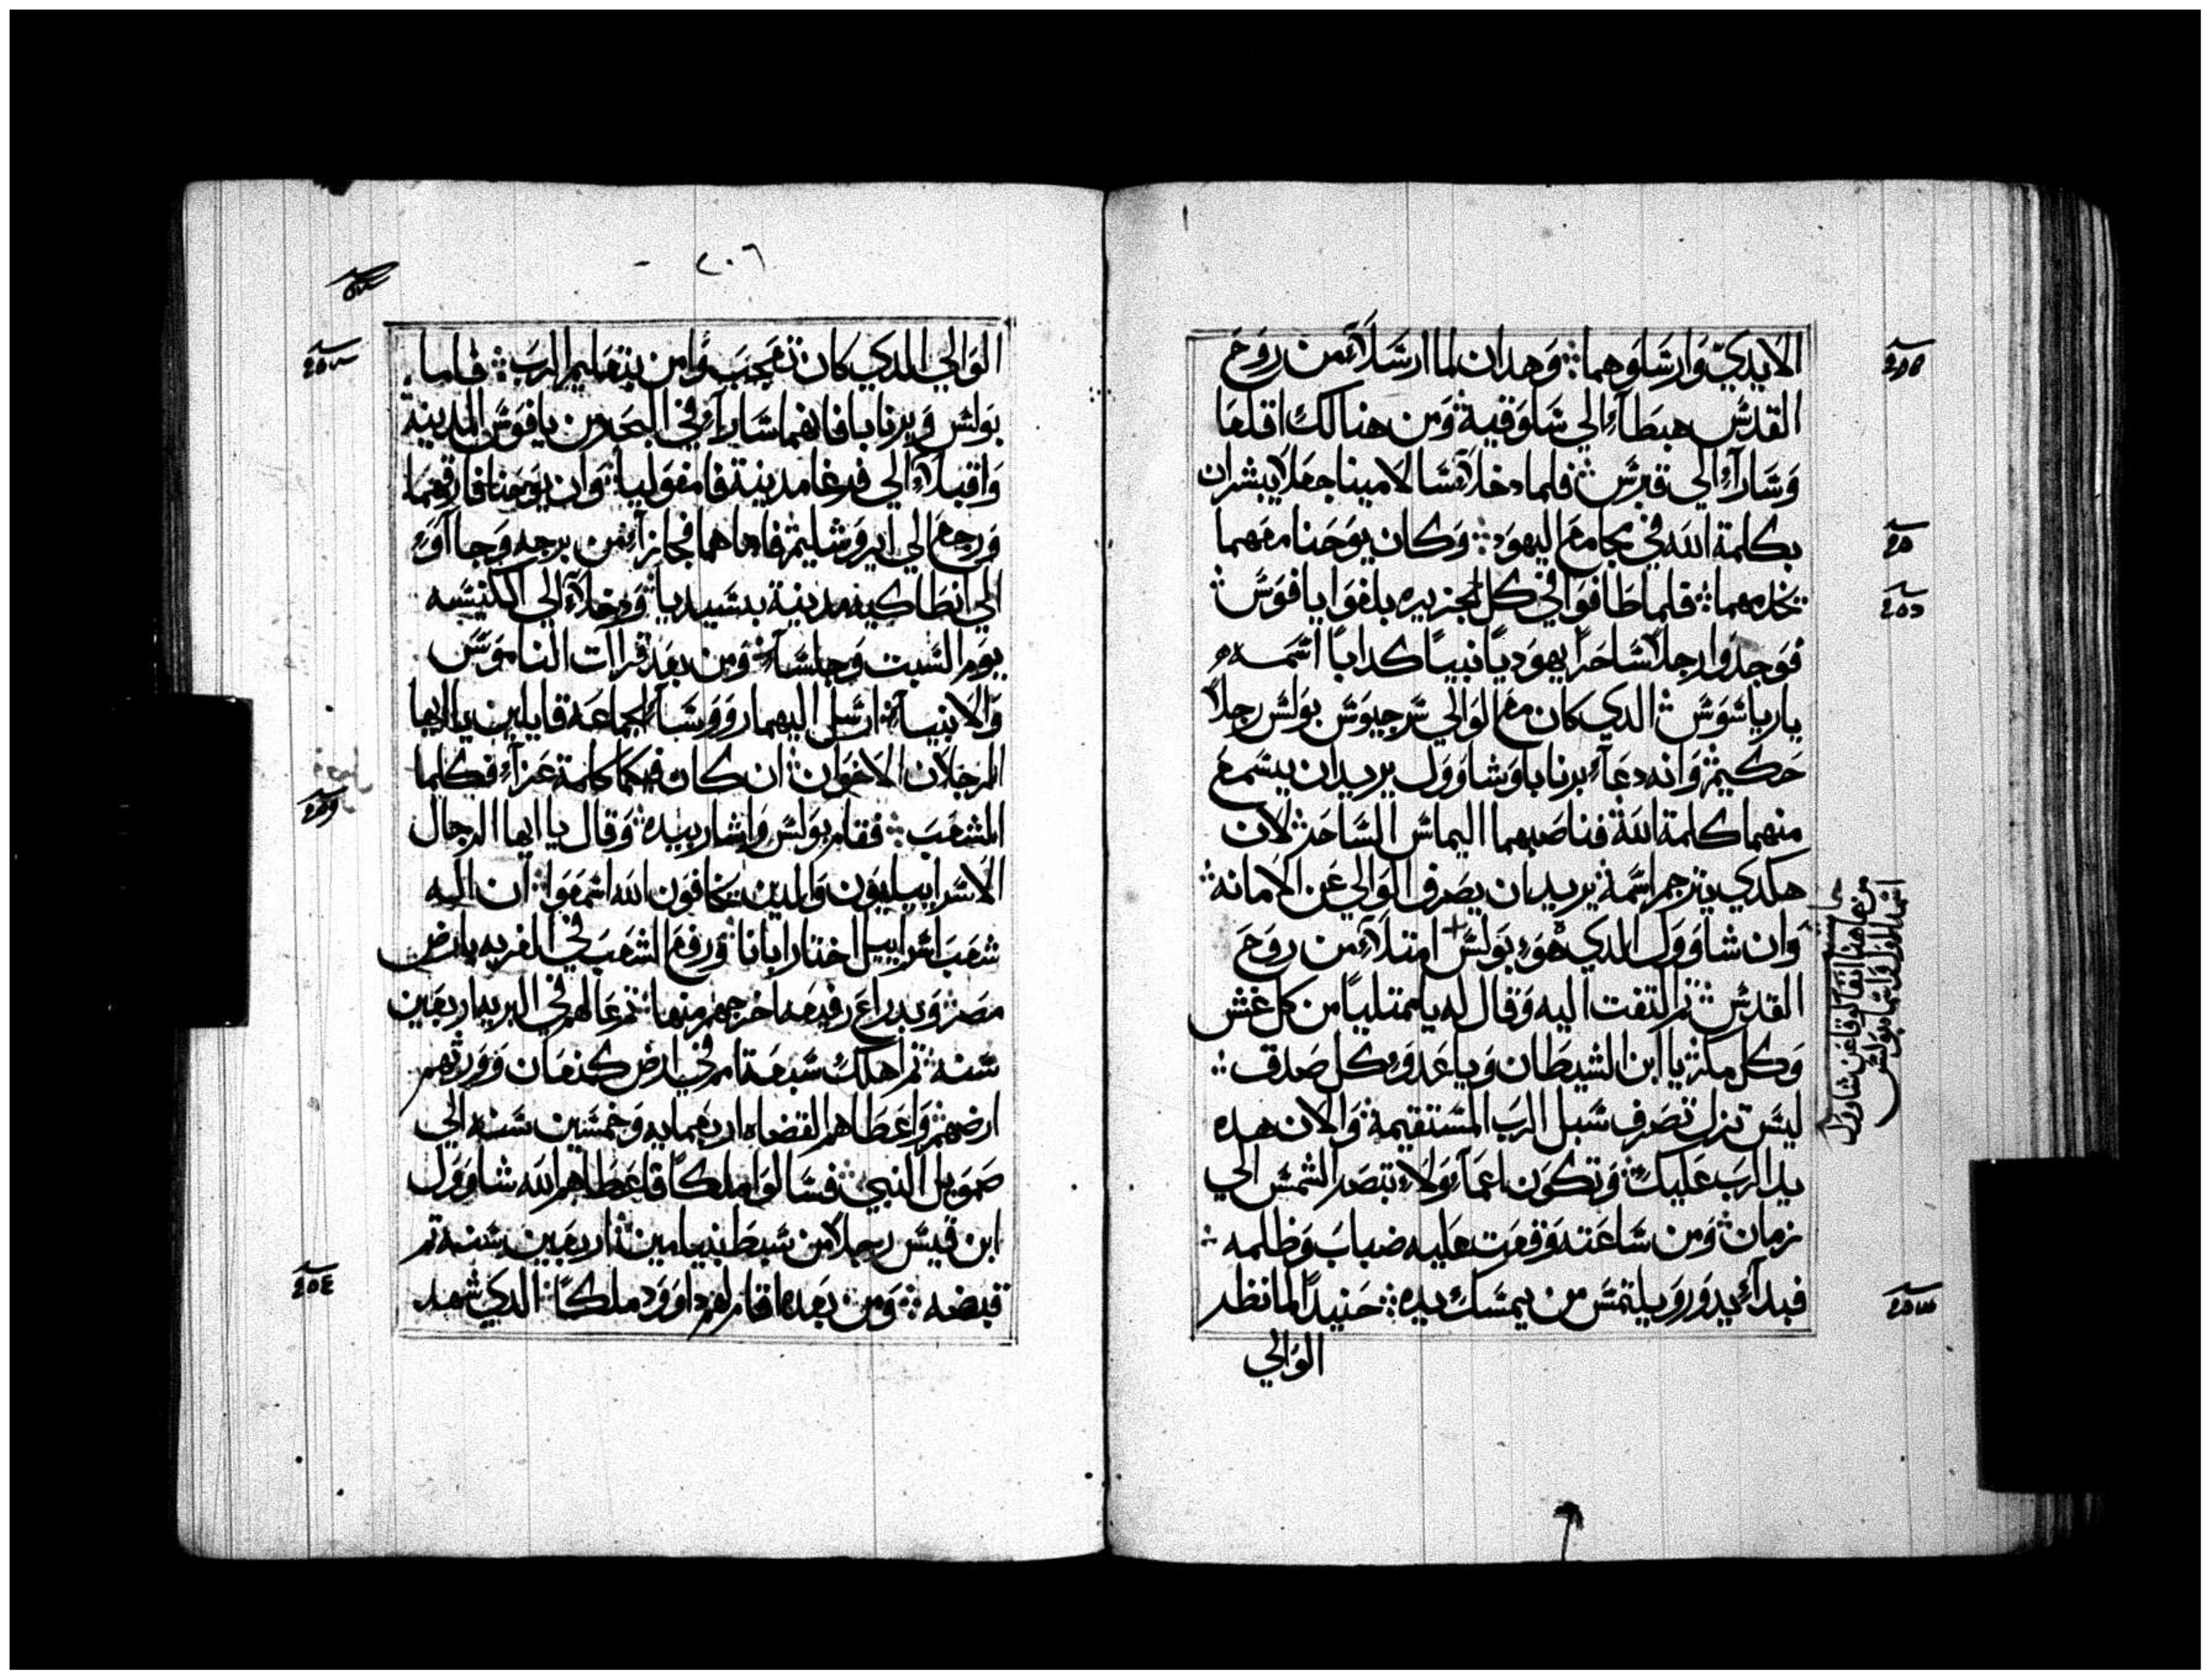 الايدي وارسلوهما وهدان لما ارسلا من روح
القدس هبطا الي سلوقية ومن هنالك اقلعا
وسارا الي قبرس فلما دخلا سالامينا جعلا يبشران
بكلمة الله في مجامع اليهود وكان يوحنا معهما
يخدمهما فلما طافوا في كل الجزيره بلغوا يافوس
فوجدوا رجلا ساحرا يهوديا نبيا كدابا اسمه
بارياشوس الدي كان مع الوالي سرجيوس بولس رجلا
حكيم وانه دعا برنابا وشاوول يريد ان يسمع
منهما كلمة الله فناصبهما اليماس الساحر لان
هكدي يترجم اسمه يريد ان يصرف الوالي عن الامانه
وان شاوول الدي هو بولس امتلا من روح
القدس تم التفت اليه وقال له يا ممتليا من كل غش
وكل مكر يا ابن الشيطان ويا عدو كل صدق
ليس تزل تصرف سبل الرب المستقيمة والان هده
يد الرب عليك وتكون اعما ولا تبصر الشمس الي
زمان ومن ساعته وقعت عليه ضباب وظلمه
فبدا يدور ويلتمس من يمسك يده حنيدا لما نظر
الوالي
من هاهنا
٢٠٦
الوالي الدي كان تعجب وامن بتعليم الرب فاما
بولس وبرنابا فانهما سارا في البحر من يافوس المدينة
واقبلا الي فرغا مدينة فامفوليا وان يوحنا فارقهما
ورجع الي ايروشليم فاما هما فجازا من برجه وجااوا
الي انطاكيه مدينة بسيديا ودخلا الي الكنيسه
يوم السبت وجلسا ومن بعد قراات الناموس
والانبيا ارسل اليهما روسا الجماعه قايلين يا ايها
الرجلان الاخوان ان كان فيكما كلمة عزا فكلما
الشعب فقام بولس واشار بيده وقال يا ايها الرجال
الاسراييليون والدين يخافون الله اسمعوا ان اله
شعب اسراييل اختار ابانا ورفع الشعب في الغربه بارض
مصر وبدراع رفيعه اخرجهم منها تم عالهم في البريه اربعين
سنه تم اهلك سبعة امم في ارض كنعان وورثهم
ارضهم واعطاهم القضاه اربعمايه وخمسين سنه الي
صمويل النبي فسالوا ملكا فاعطاهم الله شاوول
ابن قيس رجلا من سبط بنيامين اربعين سنه تم
قبضه ومن بعده اقام لهم داوود ملكا الدي شهد